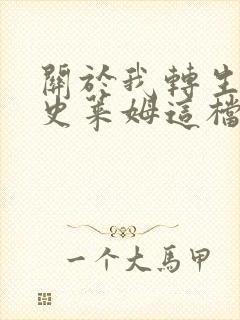 關於我轉生
史萊姆這檔
一个大馬甲